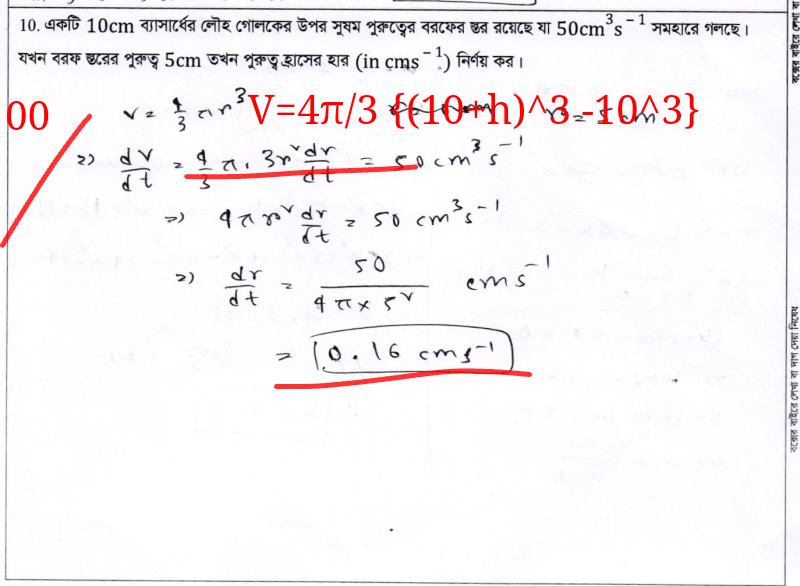 10. একটি 10cm ব্যাসার্ধের লৌহ গোলকের উপর সুষম পুরুত্বের বরফের স্তর রয়েছে যা 50cm³s⁻¹ সমহারে গলছে।
যখন বরফ স্তরের পুরুত্ব 5cm তখন পুরুত্ব হ্রাসের হার (in cms⁻¹) নির্ণয় কর।
00
V = 4/3 πr³ V=4π/3 {(10+h)^3 -10^3} r = 5 cm
⇒) dV/dt = 4/3 π. 3r² dr/dt = 50 cm³ s⁻¹
⇒) 4πr² dr/dt = 50 cm³s⁻¹
⇒) dr/dt = 50/4π×5² cms⁻¹
= 0.16 cms⁻¹
বক্সের বাইরে লেখা বা দাগ দেয়া নিষেধ